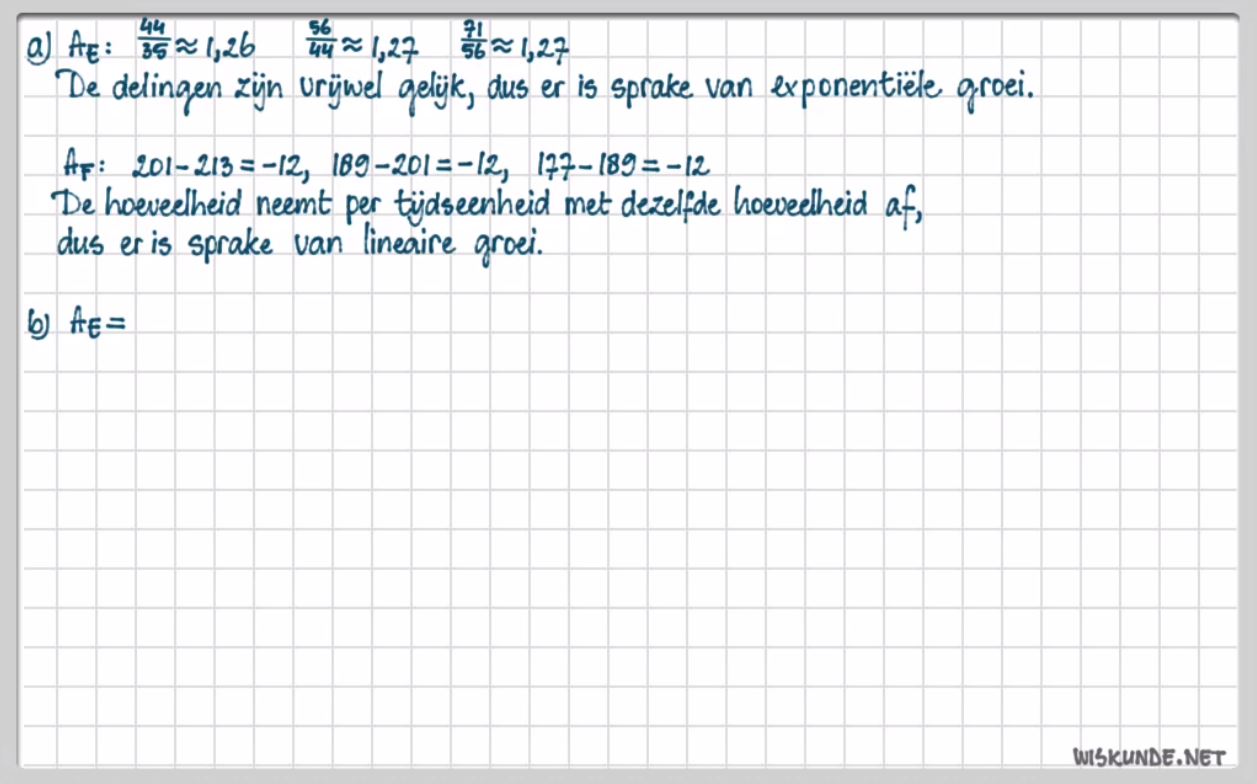 a) A_E: 44/35 ≈ 1,26 56/44 ≈ 1,27 71/56 ≈ 1,27
De delingen zijn vrijwel gelijk, dus er is sprake van exponentiële groei.
A_F: 201-213=-12, 189-201=-12, 177-189=-12
De hoeveelheid neemt per tijdseenheid met dezelfde hoeveelheid af,
dus er is sprake van lineaire groei.
b) A_E=
WISKUNDE.NET